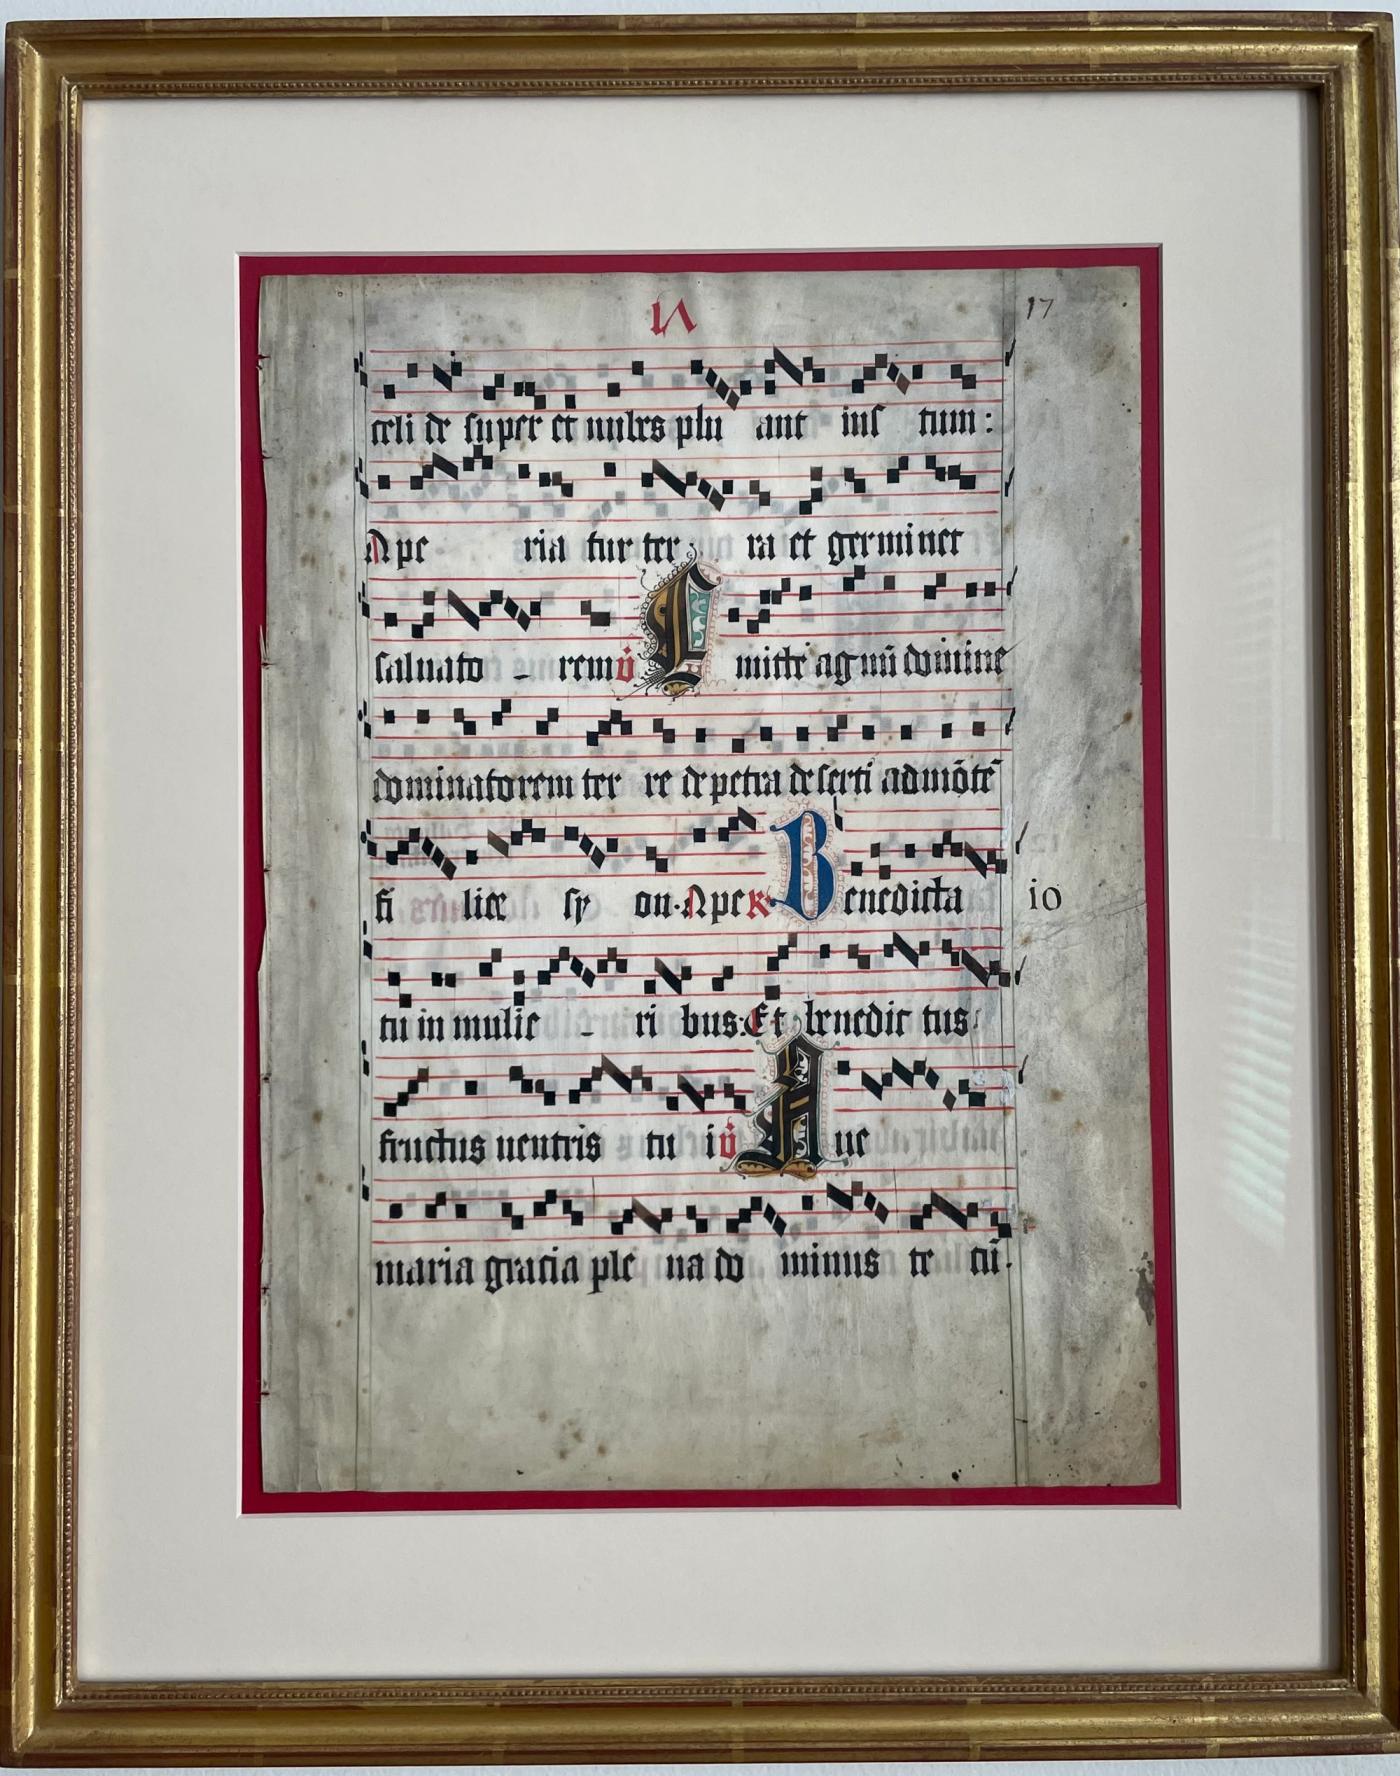 17
celi de super et nubes plu ant ius tum:
Ape ria tur ter ra et germinet
saluato - rem v̇ E mitte agnū domine
dominatorem ter re de petra deserti ad mōtē
fi lice sy on. Ape ℟ Benedicta io
tu in mulie - ri bus: Et benedic tus
fructus uentris tu i v̇ A ue
maria gracia ple na do minus te cū.